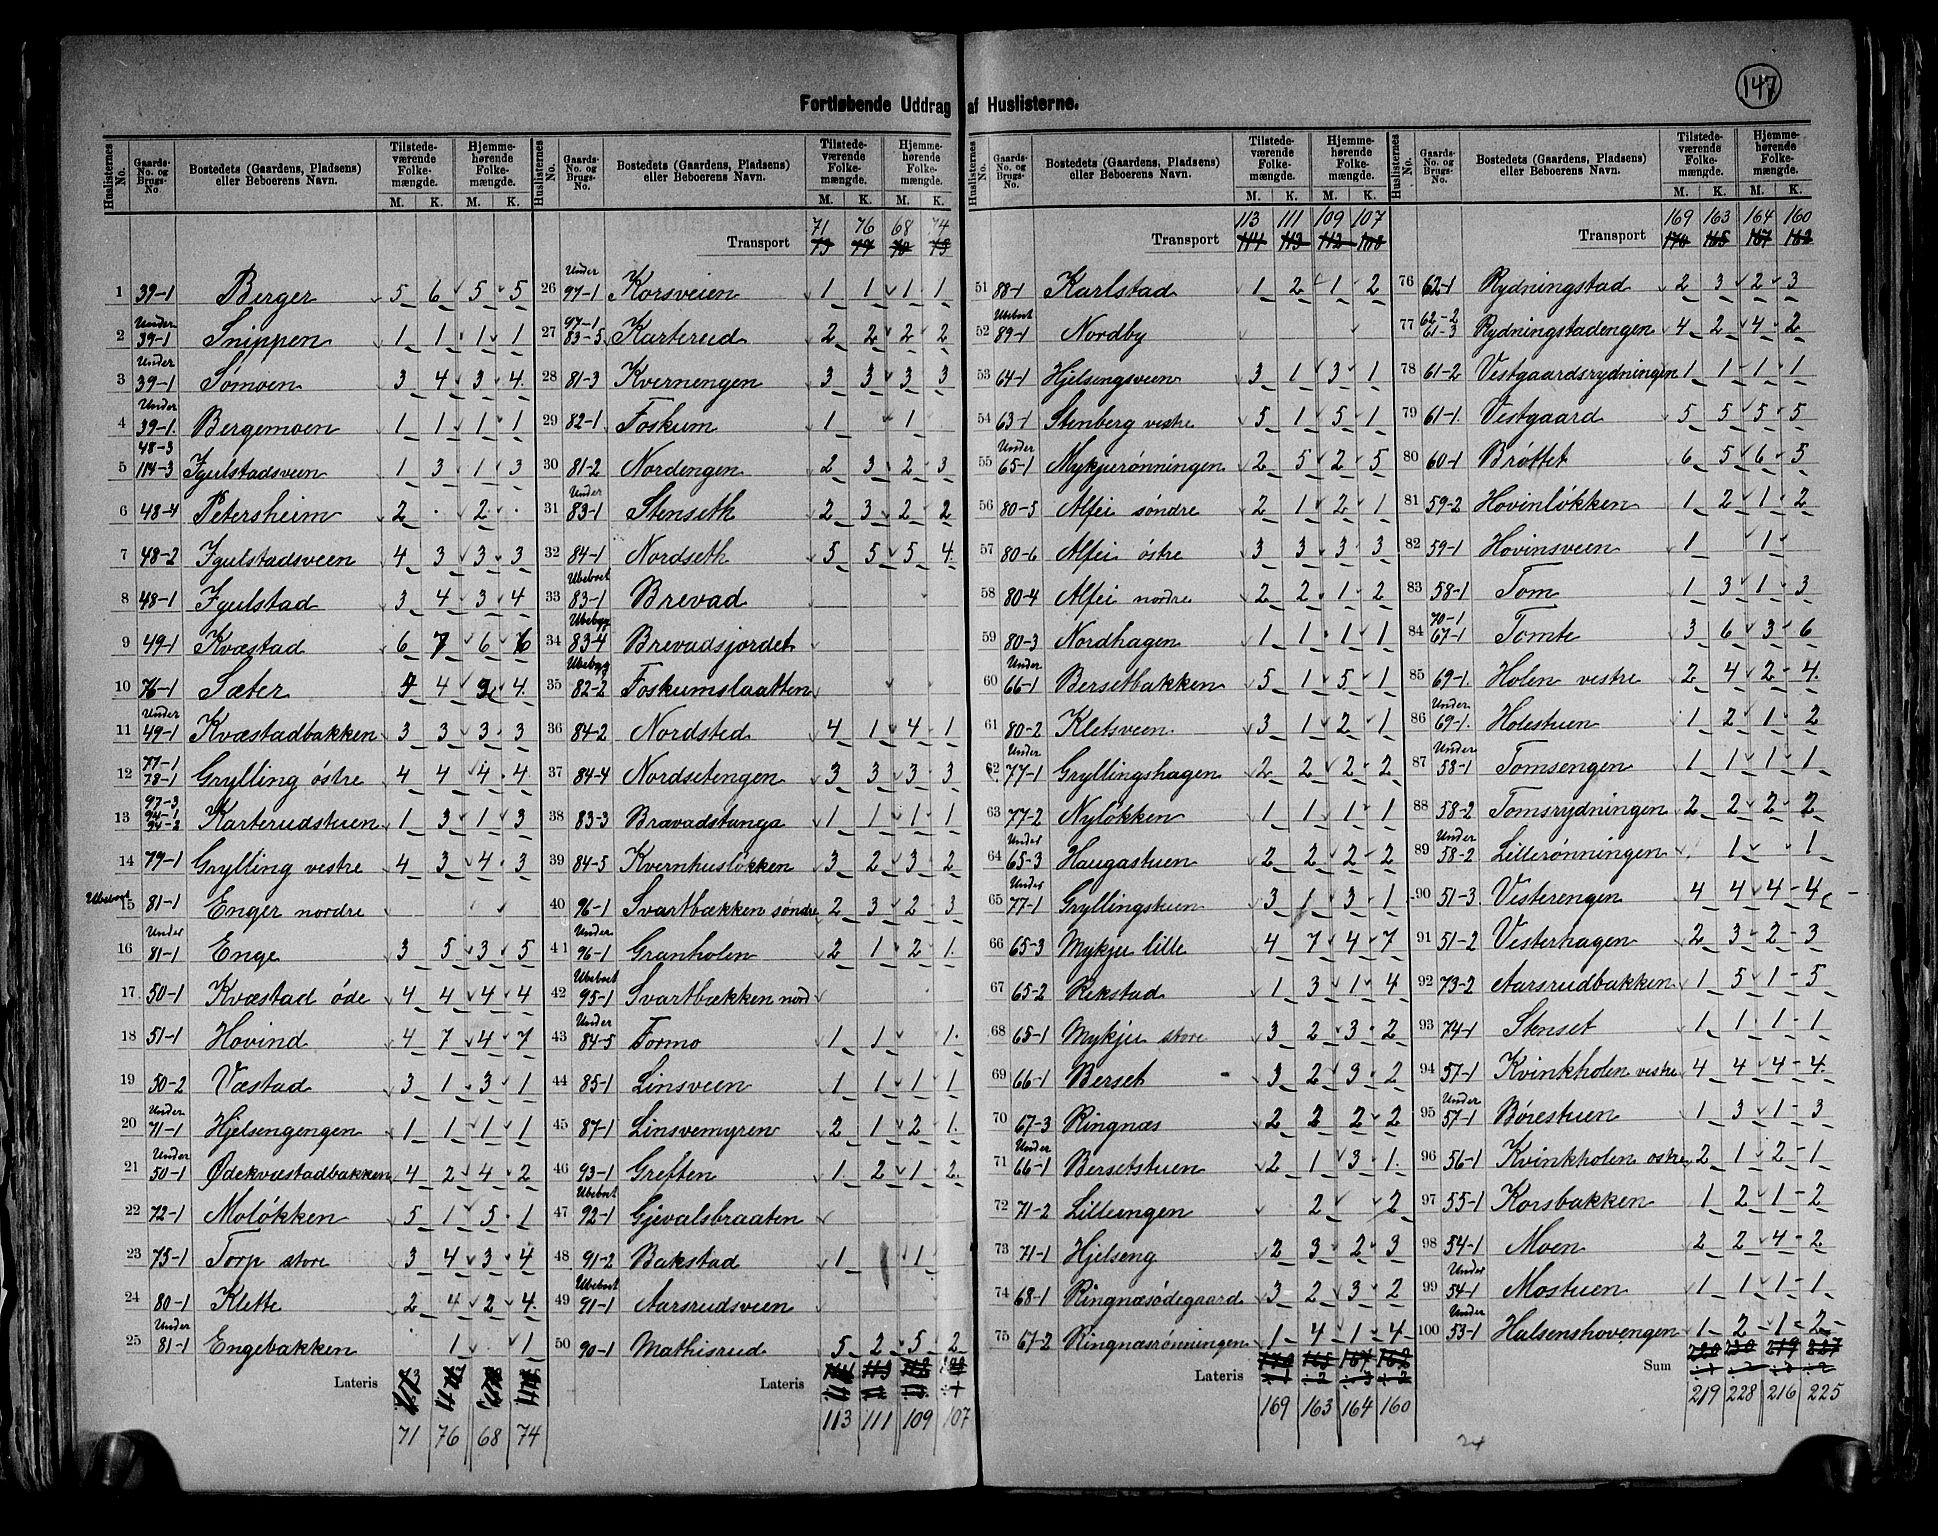 147
Fortløbende Uddrag af Huslisterne.
Huslisternes No. | Gaards-No. og Brugs-No. | Bostedets (Gaardens, Pladsens) eller Beboerens Navn. | Tilstedeværende Folkemængde. M. K. | Hjemmehørende Folkemængde. M. K.
1 39-1 Berger 5 6 5 5
2 Under 39-1 Snippen 1 1 1 1
3 Under 39-1 Sømoen 3 4 3 4
4 Under 39-1. Bergemoen 1 1 1 1
5 48-3 114-3 Igulstadsveen 1 3 1 3
6 48-4 Petersheim 2 · 2 ·
7 48-2 Igulstadsveen 4 3 3 3
8 48-1 Igulstad 3 4 3 4
9 49-1 Kvæstad 6 7 6 6
10 76-1 Sæter 4 4
11 Under 49-1 Kvæstadbakken 3 3 3 3
12 77-1 78-1 Grylling østre 4 4 4 4
13 97-3 94-1 94-2 Karterudstuen 1 3 1 3
14 79-1 Grylling vestre 4 3 4 3
Ubeboet 15 81-1 Enger nordre
16 Under 81-1 Enge 3 5 3 5
17 50-1 Kvæstad øde 4 4 4 4
18 51-1 Hovind 4 7 4 7
19 50-2 Væstad 3 1 3 1
20 Under 71-1 Hjelsengengen 1 1 1 1
21 Under 50-1 Ødekvæstadbakken 4 2 4 2
22 72-1 Moløkken 5 1 5 1
23 75-1 Torp store 3 4 3 4
24 80-1 Klette 2 4 2 4
25 Under 81-1 Engebakken 1 1
Lateris
71 76 68 74
Huslisternes No. | Gaards-No. og Brugs-No. | Bostedets (Gaardens, Pladsens) eller Beboerens Navn. | Tilstedeværende Folkemængde. M. K. | Hjemmehørende Folkemængde. M. K.
71 76 68 74
Transport 73 77 70 75
26 Under 97-1 Korsveien 1 1 1 1
27 97-1 83-5 Karterud 2 2 2 2
28 81-3 Kvernengen 3 3 3 3
29 82-1 Foskum 1 1
30 81-2 Nordengen 2 3 2 3
31 Under 83-1 Stenseth 2 3 2 2
32 84-1 Nordseth 5 5 5 4
33 Ubeboet 83-1 Brevad
34 Ubebyg 83-4 Brevadsjordet
35 Ubebyg 82-2 Foskumslaatten
36 84-2 Nordsted 4 1 4 1
37 84-4 Nordsetengen 3 3 3 3
38 83-3 Brævadstanga 1 1 1 1
39 84-5 Kvernhusløkken 3 2 3 2
40 96-1 Svartbækken søndre 2 3 2 3
41 Under 96-1 Granholen 2 1 2 1
42 Ubeboet 95-1 Svartbækken nord
43 Under 84-5 Formo 1 1 1
44 85-1 Linsveen 1 1 1 1
45 87-1 Linsvemyren 2 1 2 1
46 93-1 Greften 1 2 1 2
47 Ubeboet 92-1 Gjevalsbraaten
48 91-2 Bakstad 1 1
49 Ubeboet 91-1 Aarsrudsveen
50 90-1 Mathisrud 5 2 5 2
Lateris
113 111 109 107
Huslisternes No. | Gaards-No. og Brugs-No. | Bostedets (Gaardens, Pladsens) eller Beboerens Navn. | Tilstedeværende Folkemængde. M. K. | Hjemmehørende Folkemængde. M. K.
113 111 109 107
Transport 114 113 112 108
51 88-1 Karlstad 1 2 1 2
52 Ubeboet 89-1 Nordby
53 64-1 Hjelsengsveen 3 1 3 1
54 63-1 Stenberg vestre 5 1 5 1
55 Under 65-1 Mykjurønningen 2 5 2 5
56 80-5 Alfei søndre 2 1 2 1
57 80-6 Alfei østre 3 3 3 3
58 80-4 Alfei nordre 2 2 1 2
59 80-3 Nordhagen 1 1 1 1
60 Under 66-1 Bersetbakken 5 1 5 1
61 80-2 Kletsveen 3 1 2 1
62 Under 77-1 Gryllingshagen 2 2 2 2
63 77-2 Nyløkken 1 1 1 1
64 Under 65-3 Haugastuen 2 2 2 2
65 Under 77-1 Gryllingstuen 3 1 3 1
66 65-3 Mykju lille 4 7 4 7
67 65-2 Rekstad 1 3 1 4
68 65-1 Mykju store 3 2 3 2
69 66-1 Berset 3 2 3 2
70 67-3 Ringnæs 2 2 2 2
71 Under 66-1 Bersetstuen 2 1 3 1
72 71-2 Lilleengen 2 2
73 71-1 Hjelseng 2 3 2 3
74 68-1 Ringnæsødegaard 3 2 3 2
75 67-2 Ringnæsrønningen 1 4 1 4
Lateris
169 163 164 160
Huslisternes No. | Gaards-No. og Brugs-No. | Bostedets (Gaardens, Pladsens) eller Beboerens Navn. | Tilstedeværende Folkemængde. M. K. | Hjemmehørende Folkemængde. M. K.
169 163 164 160
Transport 170 165 167 162
76 62-1 Rydningstad 2 3 2 3
77 62-2 61-3 Rydningstadengen 4 2 4 2
78 61-2 Vestgaardsrydningen 1 1 1 1
79 61-1. Vestgaard 5 5 5 5
80 60-1 Brøttet 6 5 6 5
81 59-2 Hovinløkken 1 2 1 2
82 59-1 Hovinsveen 1 1
83 58-1 Tom 1 3 1 3
84 70-1 67-1 Tomte 3 6 3 6
85 69-1. Holen vestre 2 4 2 4
86 Under 69-1. Holestuen 1 2 1 2
87 Under 58-1 Tomsengen 1 1 1 1
88 58-2 Tomsrydningen 2 2 2 2
89 Under 58-2 Lillerønningen 1 1
90 51-3 Vesterengen 4 4 4 4
91 51-2 Vesterhagen 2 3 2 3
92 73-2 Aarsrudbakken 1 5 1 5
93 74-1 Stenset 1 1 1 1
94 57-1 Kvinkholen vestre 4 4 4 4
95 Under 57-1 Børestuen 1 3 1 3
96 56-1 Kvinkholen østre 2 1 2 1
97 55-1 Korsbakken 1 2 1 2
98 54-1 Moen 2 2 4 2
99 Under 54-1 Mostuen 1 1 1 1
100 Under 53-1 Halsenshovengen 1 2 1 2
220 230 219 227
Sum
219 228 216 225
24